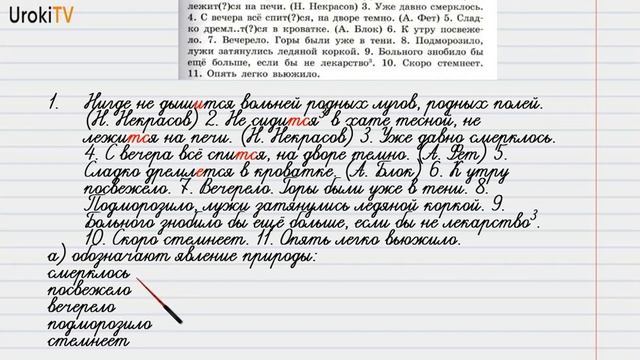 UrokiTV
лежит(?)ся на печи. (Н. Некрасов) 3. Уже давно смерклось.
4. С вечера всё спит(?)ся, на дворе темно. (А. Фет) 5. Слад-
ко дремл..т(?)ся в кроватке. (А. Блок) 6. К утру посвеже-
ло. 7. Вечерело. Горы были уже в тени. 8. Подморозило,
лужи затянулись ледяной коркой. 9. Больного знобило бы
ещё больше, если бы не лекарство³. 10. Скоро стемнеет.
11. Опять легко вьюжило.
1. Нигде не дышится вольней родных лугов, родных полей.
(Н. Некрасов) 2. Не сидится³ в хате тесной, не
лежится на печи. (Н. Некрасов) 3. Уже давно смерклось.
4. С вечера всё спится, на дворе темно. (А. Фет) 5.
Сладко дремлется в кроватке. (А. Блок) 6. К утру
посвежело. 7. Вечерело. Горы были уже в тени. 8.
Подморозило, лужи затянулись ледяной коркой. 9.
Больного знобило бы ещё больше, если бы не лекарство³.
10. Скоро стемнеет. 11. Опять легко вьюжило.
а) обозначают явление природы:
смерклось
посвежело
вечерело
подморозило
стемнеет